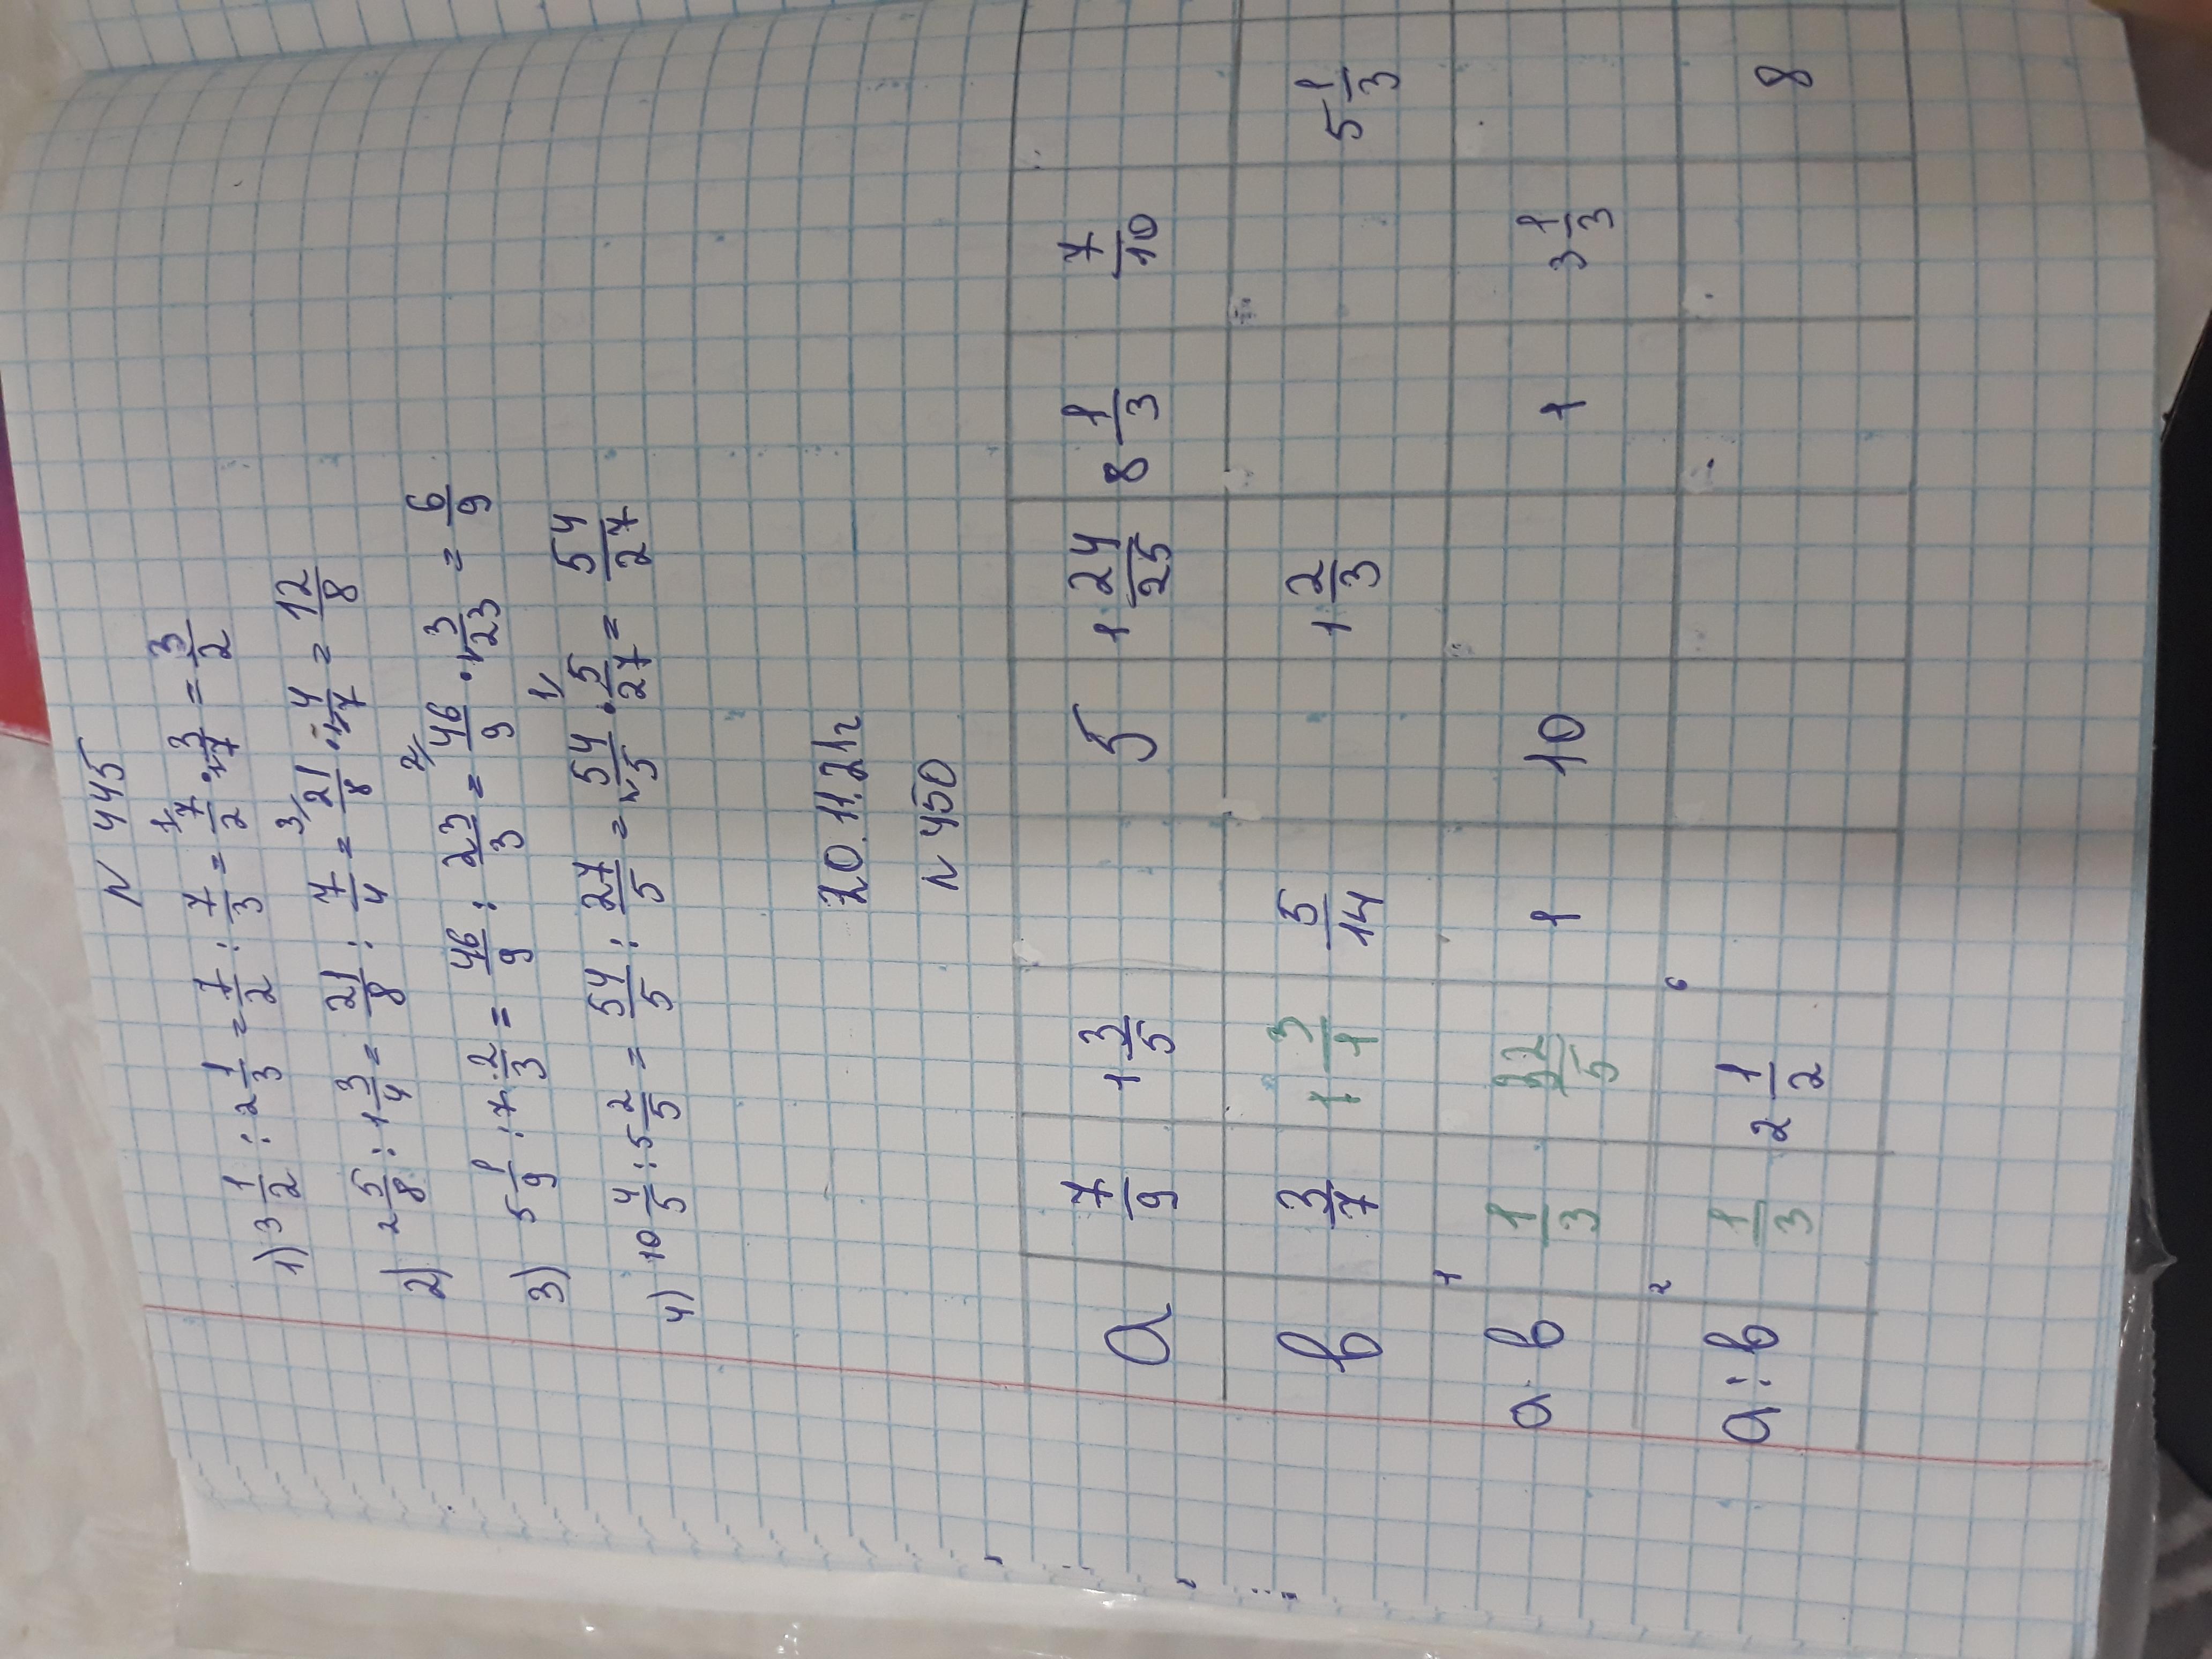 N 445
1) 3 1/2 : 2 1/3 = 7/2 : 7/3 = 7/2 · 3/7 = 3/2
2) 2 5/8 : 1 3/4 = 21/8 : 7/4 = 21/8 · 4/7 = 12/8
3) 5 1/9 : 7 2/3 = 46/9 : 23/3 = 46/9 · 3/23 = 6/9
4) 10 4/5 : 5 2/5 = 54/5 : 27/5 = 54/5 · 5/27 = 54/27
20.11.21г
N 450
a 7/9 1 3/5 5 1 24/25 8 1/3 7/10
b 3/7 1 3/4 5/14 1 2/3 5 1/3
a·b 1/3 32/5 1 10 1 3 1/3
a:b 1/3 2 1/2 8